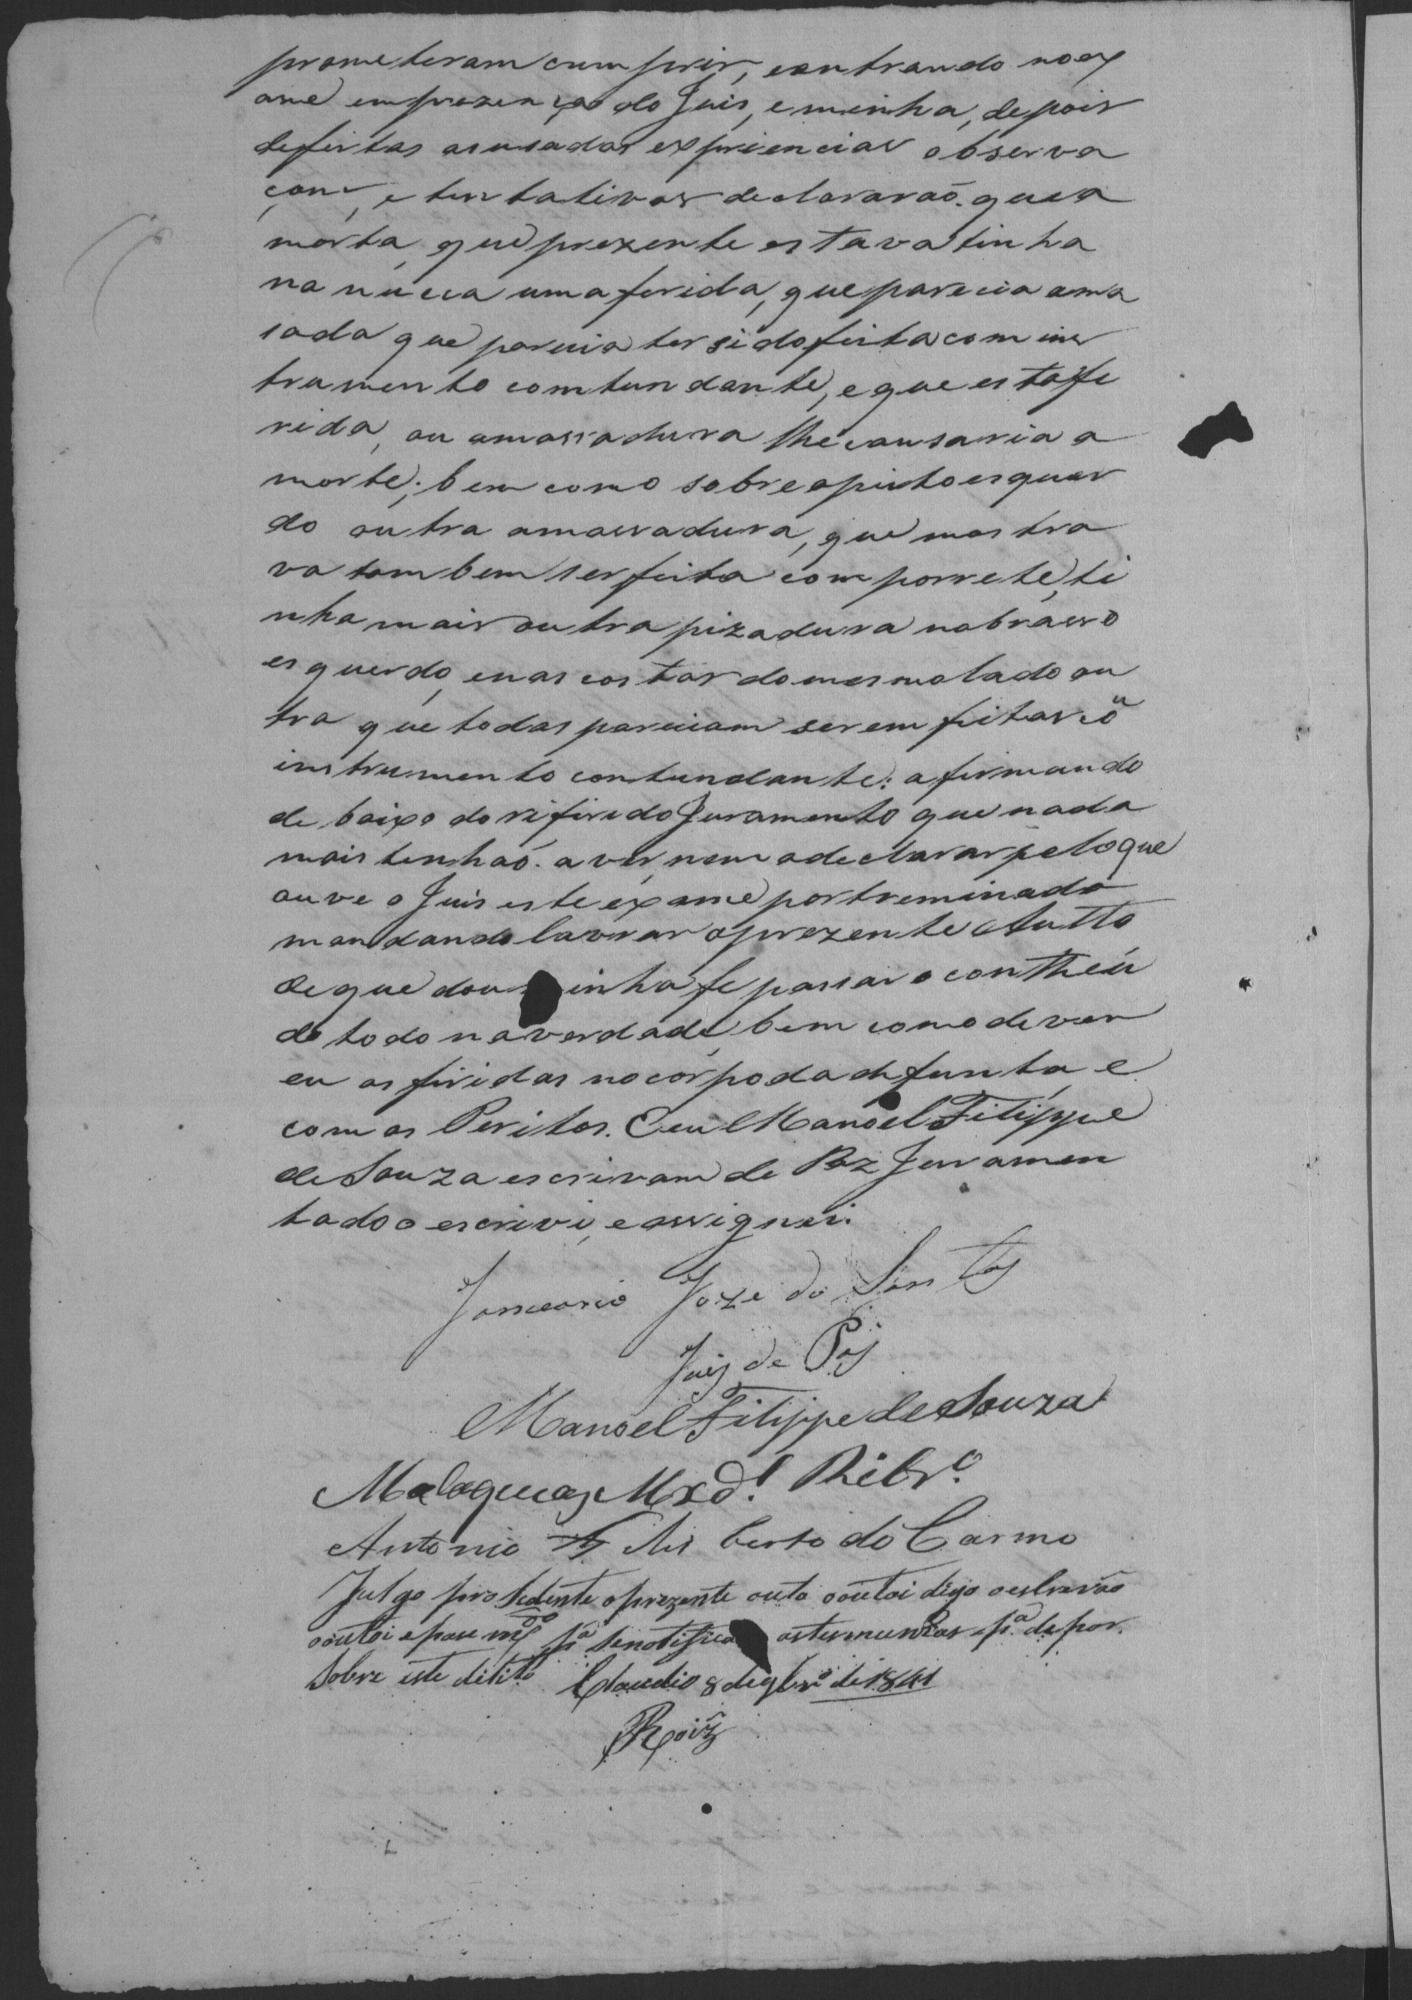 prometeram cumprir, eentrando noex
ame emprezença do Juis, eminha, depois
defeitas asusadas expriencias observa
çoens, e tentativas declararaõ. que a
morta, que prezente estava tinha
na nucca uma ferida, que parecia ama
sada que parecia ter sido feita com ins
trumento comtundante, e que esta fe
rida, ou amassadura lhe causaria a
morte; bem como sobre opeito esquer
do outra amassadura, que mostra
va tambem ser feita com porrete, ti
nha mais outra pizadura nobrasso
esquerdo, enas costas domesmolado ou
tra que todas pareciam serem feitas cõ
instrumento contundante: afirmando
de baixo do rifirido Juramento que nada
mais tenhaõ. a ver, nem a declarar, pelo que
ouve o Juis este exame por treminado
mandando lavrar oprezente Autto
de que dou minha fe passar o contheu
do todo na verdade, bem como de ver
eu as firidas no corpo da defunta, e
com os Peritos. E eu Manoel Filippe
de Souza escrivam de Paz Juramen
tado o escrivi, e assignei.
Janoario Joze do Santos
Juiz de Paz
Manoel Filippe de Souza
Malaquias Mxd.l Ribr.o
Antonio Fis berto do Carmo
Julgo prosedente oprezente auto digo oeslravão
pase p.a Senotifica as testemunhas p.a depor.
Sobre este dilito Claudio 8 de 9br.o de 1841
Roiz